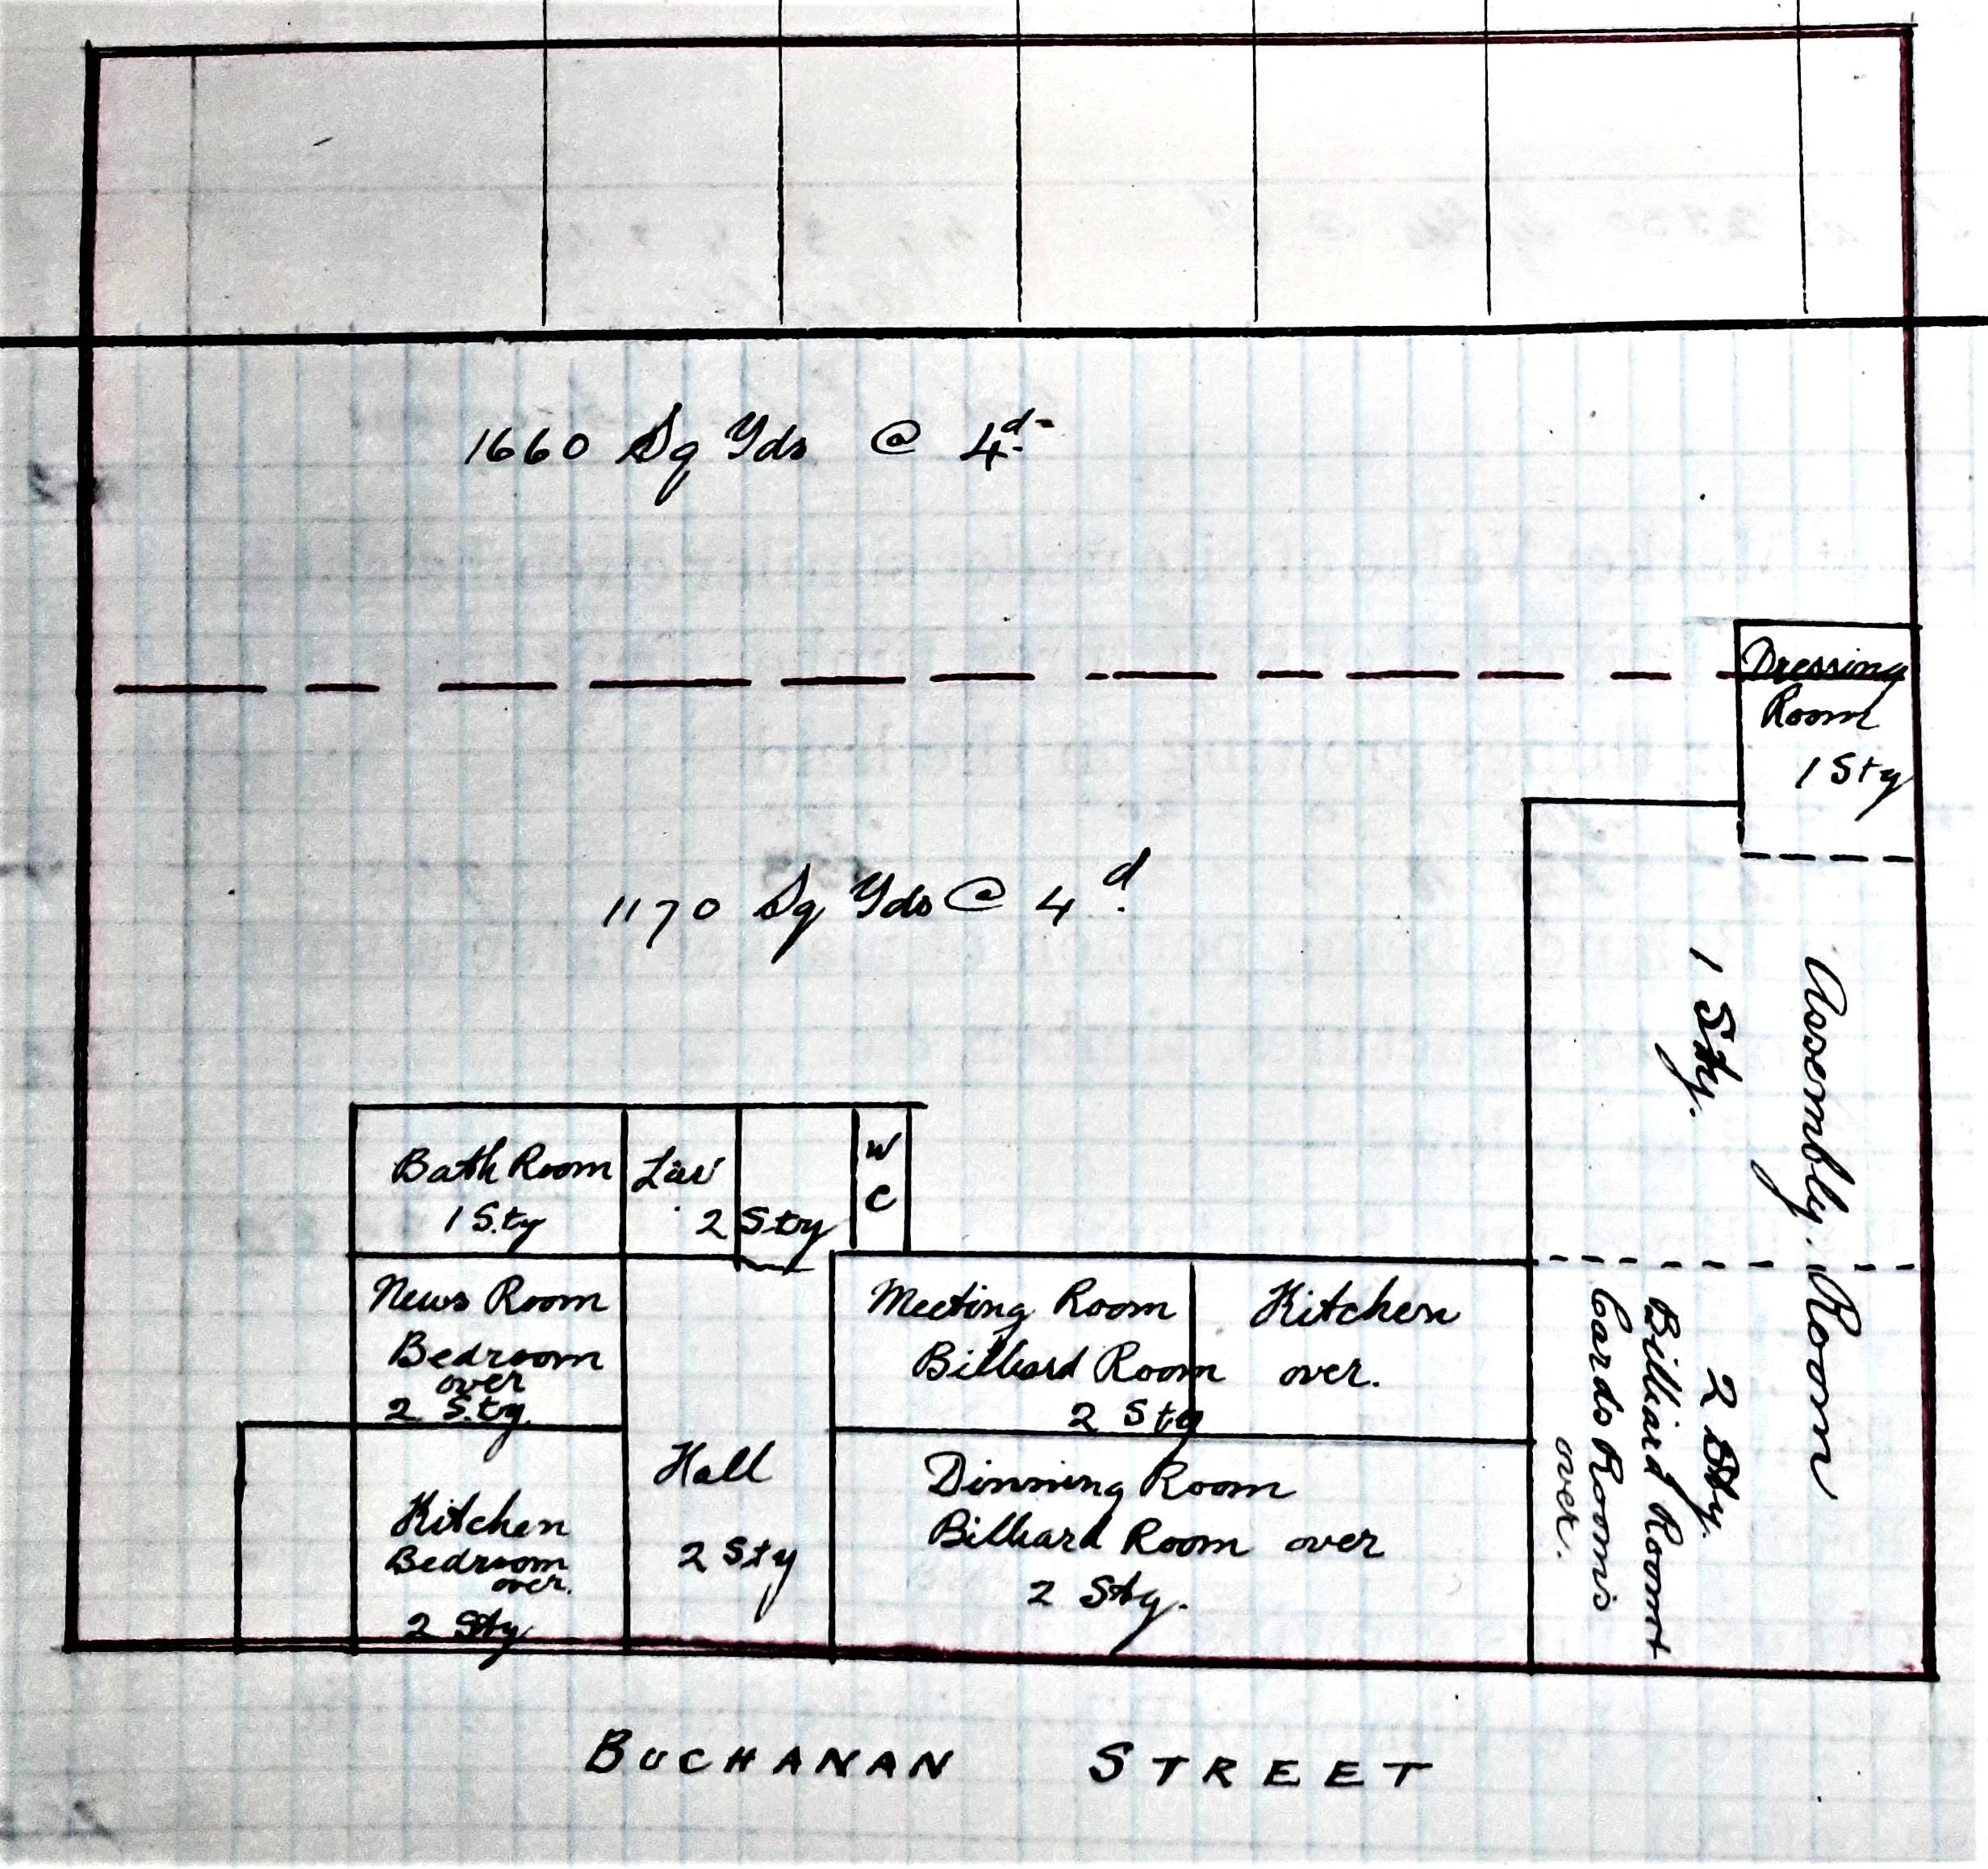 1660 Sq Yds @ 4d
1170 Sq Yds @ 4d
Dressing
Room
1 Sty
Assembly Room
1 Sty.
Bath Room
1 Sty
Lav
2 Sty
W
C
News Room
Bedroom
over
2 Sty.
Kitchen
Bedroom
over.
2 Sty
Hall
2 Sty
Meeting Room
Kitchen
Billiard Room over.
2 Sty
Dinning Room
Billiard Room over
2 Sty.
2 Sty.
Billiard Room +
Cards Rooms
over.
BUCHANAN STREET